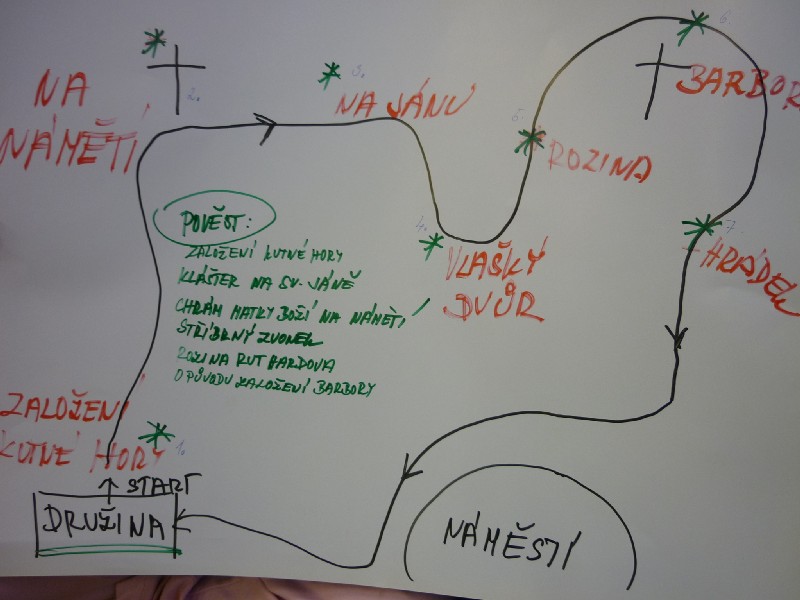 NA
NÁMĚTÍ
2.
3.
NA JÁNU
5.
ROZINA
6.
BARBOR
4.
VLAŠKÝ
DVŮR
7.
HRÁDEK
POVĚST:
ZALOŽENÍ KUTNÉ HORY
KLÁŠTER NA SV. JÁNĚ
CHRÁM MATKY BOŽÍ NA NÁMĚTÍ
STŘÍBRNÝ ZVONEK
ROZINA RUTHARDOVA
O PŮVODU ZALOŽENÍ BARBORY
ZALOŽENÍ
KUTNÉ HORY
1.
START
DRUŽINA
NÁMĚSTÍ